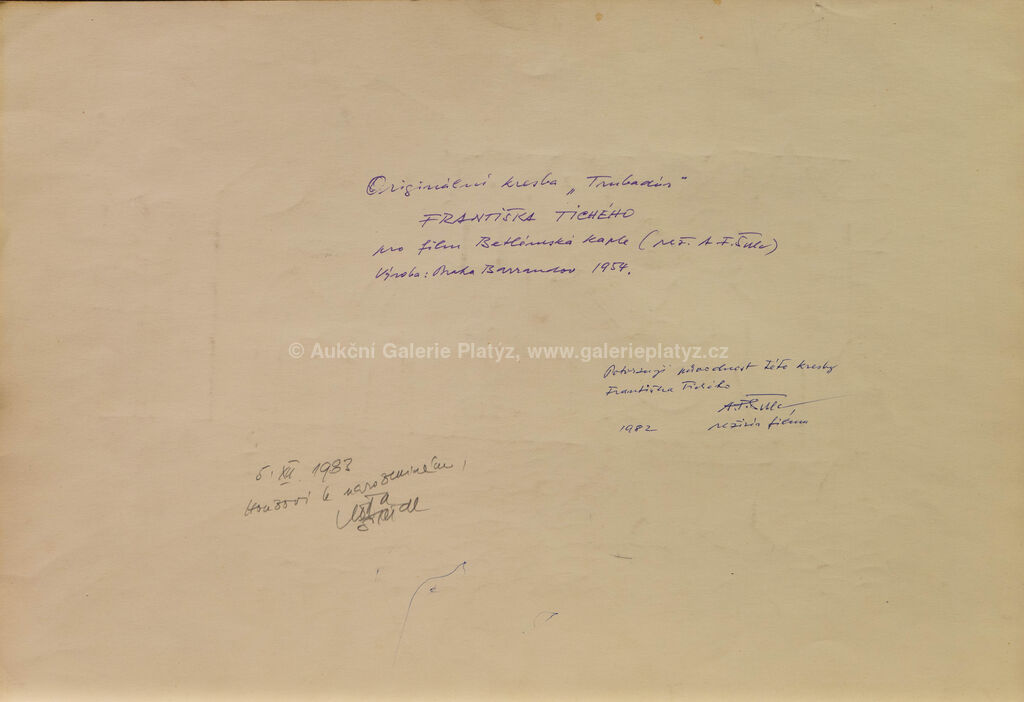 Originální kresba „Trubadúr"
FRANTIŠKA TICHÉHO
pro film Betlémská kaple (rež. A. F. Šulc)
Výroba: Praka Barrandov 1954.
© Aukční Galerie Platýz, www.galerieplatyz.cz
Potvrzuji původnost této kresby
Františka Tichého
A.F.Šulc
1982 režisér filmu
5. XII. 1983
k narozeninám,